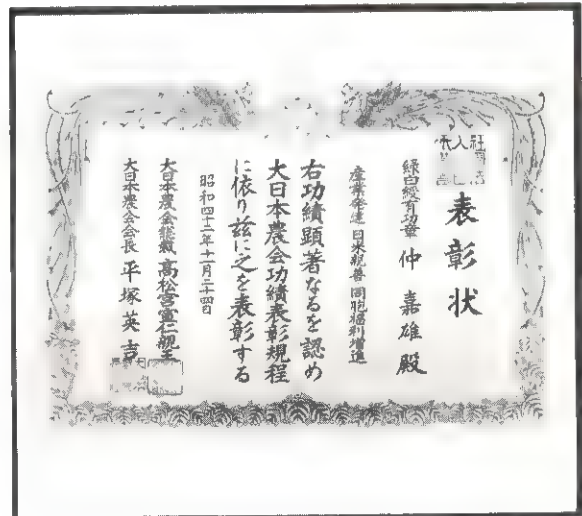 表彰状
緑白綬有功章 仲 嘉雄 殿
産業発達 日米親善 同胞福利増進
右功績顕著なるを認め
大日本農会功績表彰規程
に依り茲に之を表彰する
昭和四十二年十一月二十四日
大日本農会総裁 高松宮宣仁親王
大日本農会会長 平塚英吉